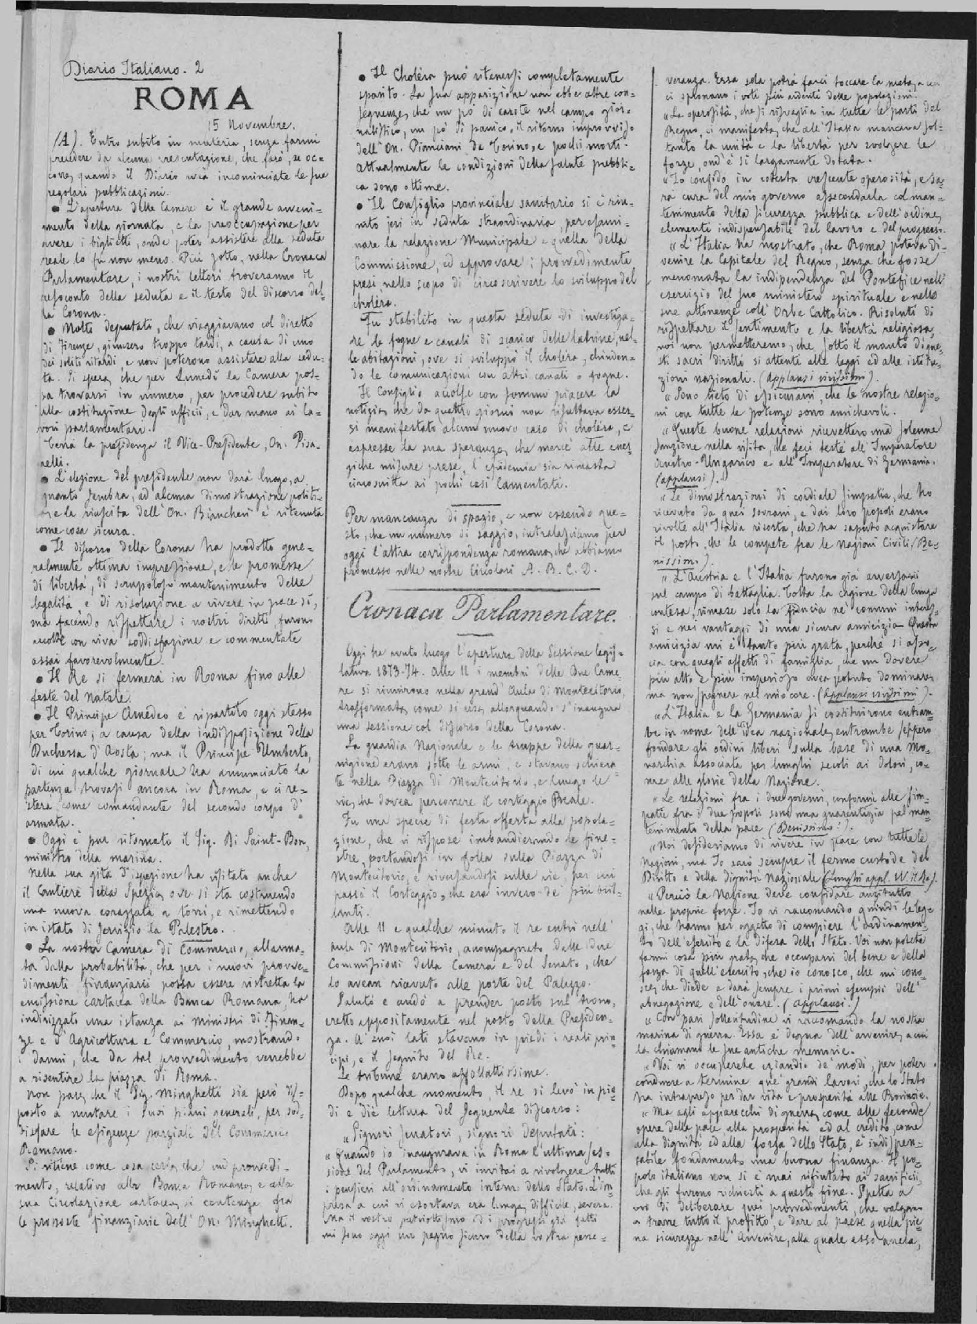 Diario Italiano. 2
ROMA
15 Novembre.
(A). Entro subito in materia, senza farmi
precedere da alcuna presentazione, che farò, se oc-
corre, quando il Diario avrà incominciate le sue
regolari pubblicazioni.
• L'apertura delle Camere è il grande avveni-
mento della giornata, e la preoccupazione per
avere i biglietti, onde poter assistere alla seduta
reale lo fu non meno. Più sotto, nella Cronaca
Parlamentare, i nostri lettori troveranno il
resoconto della seduta e il testo del discorso del-
la Corona.
• Molti deputati, che viaggiavano col diretto
di Firenze, giunsero troppo tardi, a causa di uno
dei soliti ritardi e non poterono assistere alla sedu-
ta. Si spera, che per Lunedì la Camera pos-
sa trovarsi in numero, per procedere subito
alla costituzione degli ufficii, e dar mano ai la-
vori parlamentari.
Terrà la presidenza il Vice-Presidente, On. Pisa-
nelli.
• L'elezione del presidente non darà luogo, a
quanto sembra, ad alcuna dimostrazione politi-
ca e la riuscita dell'On. Biancheri è ritenuta
come cosa sicura.
• Il discorso della Corona ha prodotto gene-
ralmente ottima impressione, e le promesse
di libertà, di scrupoloso mantenimento delle
legalità, e di risoluzione a vivere in pace sì,
ma facendo rispettare i nostri diritti furono
accolte con viva soddisfazione e commentate
assai favorevolmente.
• Il Re si fermerà in Roma fino alle
feste del Natale.
• Il Principe Amedeo è ripartito oggi stesso
per Torino, a causa della indisposizione della
Duchessa d'Aosta; ma il Principe Umberto,
di cui qualche giornale ha annunciato la
partenza trovasi ancora in Roma, e ci re-
sterà come comandante del secondo corpo d'
armata.
• Oggi è pur ritornato il Sig. Di Saint-Bon,
ministro della marina.
Nella sua gita d'ispezione ha visitato anche
il Cantiere della Spezia, ove si sta costruendo
una nuova corazzata a torri, e rimettendo
in istato di servizio la Palestro.
• La nostra Camera di Commercio, allarma-
ta dalla probabilità, che per i nuovi provve-
dimenti finanziarii possa essere ristretta la
emissione cartacea della Banca Romana, ha
indirizzato una istanza ai ministri di Finan-
ze e d'Agricoltura e Commercio, mostrando
i danni, che da tal provvedimento verrebbe
a risentire la piazza di Roma.
Non pare, che il Sig. Minghetti sia però dis-
posto a mutare i suoi piani generali, per sod-
disfare le esigenze parziali del Commercio
Romano.
Si ritiene come cosa certa, che un provvedi-
mento, relativo alla Banca Romana, e alla
sua Circolazione cartacea si contenga fra
le proposte finanziarie dell'On. Minghetti.
• Il Cholèra può ritenersi completamente
sparito. La sua apparizione non ebbe altre con-
seguenze, che un pò di carote nel campo gior-
nalistico, un pò di panico, il ritorno improvviso
dell'On. Pianciani da Torino, e pochi morti.
Attualmente le condizioni della salute pubbli-
ca sono ottime.
• Il Consiglio provinciale sanitario si è riu-
nito jeri in seduta straordinaria, per esami-
nare le relazione Municipale e quella della
Commissione, ed approvare i provvedimenti
presi nello scopo di circoscrivere lo sviluppo del
cholèra.
Fu stabilito in questa seduta di investiga-
re le fogne e canali di scarico delle latrine, nel-
le abitazioni, ove si sviluppò il cholèra, chiuden-
do le comunicazioni con altri canali o fogne.
Il Consiglio accolse con sommo piacere la
notizia, che da quattro giorni non risultava esser-
si manifestato alcun nuovo caso di cholèra, e
espresse la sua speranza, che mercè altre ener-
giche misure prese, l'epidemia sia rimasta
circoscritta ai pochi casi lamentati.
Per mancanza di spazio, e non essendo que-
sto, che un numero di saggio, intralasciamo per
oggi l'altra corrispondenza romana, che abbiamo
promesso nelle nostre Circolari A. B. C. D.
Cronaca Parlamentare.
Oggi ha avuto luogo l'apertura della Sessione legis-
lativa 1873-74. Alle 11 i membri delle Due Came-
re si riunirono nella grand'Aula di Montecitorio,
trasformata, come si usa, allorquando s'inaugura
una sessione col discorso della Corona.
La guardia Nazionale e le truppe della guar-
nigione erano sotto le armi, e stavano schiera-
te nella Piazza di Montecitorio, e lungo le
vie, che dovea percorrere il corteggio Reale.
Fu una specie di festa offerta alla popola-
zione, che vi rispose imbandierando le fine-
stre, portandosi in folla sulla Piazza di
Montecitorio, e riversandosi nelle vie per cui
passò il Corteggio, che era invero de' più bril-
lanti.
Alle 11 e qualche minuto il re entrò nell'
aula di Montecitorio, accompagnato dalle due
Commissioni della Camera e del Senato, che
lo avean ricevuto alle porte del Palazzo.
Salutò e andò a prender posto sul trono,
eretto appositamente nel posto della Presiden-
za. A' suoi lati stavano in piedi i reali prin-
cipi, e il seguito del Re.
Le tribune erano affollatissime.
Dopo qualche momento, il re si levò in pie-
di e diè lettura del seguente discorso:
"Signori Senatori, signori deputati:
"Quando io inaugurava in Roma l'ultima ses-
sione del Parlamento, vi invitai a rivolgere tutti
i pensieri all'ordinamento interno dello Stato. L'im-
presa a cui vi esortava era lunga, difficile, severa.
Ma il vostro patriottismo ed i progressi già fatti
mi sono oggi un pegno sicuro della vostra perse-
veranza. Essa sola potrà farci toccare la meta, a cui
ci spronano i voti più ardenti delle popolazioni.
"La operosità, che si risveglia in tutte le parti del
Regno, ci manifesta, che all'Italia mancava sol-
tanto la unità e la libertà per svolgere le
forze, ond'è sì largamente dotata.
"Io confido in codesta crescente operosità, e sa-
rà cura del mio governo assecondarla col man-
tenimento della sicurezza pubblica e dell'ordine,
elementi indispensabili del lavoro e del progresso.
"L'Italia ha mostrato, che Roma poteva di-
venire la Capitale del Regno, senza che fosse
menomata la indipendenza del Pontefice nell'
esercizio del suo ministero spirituale e nelle
sue attenenze coll'Orbe Cattolico. Risoluti di
rispettare il sentimento e la libertà religiosa,
noi non permetteremo, che sotto il manto di que-
sti sacri diritti si attenti alle leggi ed alle istitu-
zioni nazionali. (applausi vivissimi).
"Sono lieto di assicurarvi, che le nostre relazio-
ni con tutte le potenze sono amichevoli.
"Queste buone relazioni ricevettero una solenne
sanzione nella visita, che feci testè all'Imperatore
Austro-Ungarico e all'Imperatore di Germania.
(applausi).
"Le dimostrazioni di cordiale simpatia, che ho
ricevuto da quei sovrani, e dai loro popoli erano
rivolte all'Italia risorta, che ha saputo acquistare
il posto, che le compete fra le Nazioni Civili. (Be-
nissimo).
"L'Austria e l'Italia furono già avversarie
sul campo di battaglia. Tolta la cagione della lunga
contesa, rimase solo la fiducia ne' comuni interes-
si e nei vantaggi di una sicura amicizia. Questa
amicizia mi è tanto più grata, perchè si asso-
cia con quegli affetti di famiglia, che un dovere
più alto e più imperioso avea potuto dominare
ma non spegnere nel mio core. (Applausi vivissimi).
"L'Italia e la Germania si costituirono entram-
be in nome dell'idea nazionale, entrambe seppero
fondare gli ordini liberi sulla base di una Mo-
narchia associata per lunghi secoli ai dolori, co-
me alle glorie della Nazione.
"Le relazioni fra i due governi, conformi alle sim-
patie fra i due popoli sono una guarentigia pel man-
tenimento della pace (Benissimo!).
"Noi desideriamo di vivere in pace con tutte le
Nazioni, ma Io sarò sempre il fermo custode del
Diritto e della dignità Nazionale (Lunghi appl. W. il Re).
"Perciò la Nazione deve confidare anzitutto
nelle proprie forze. Io vi raccomando quindi le leg-
gi, che hanno per oggetto di compiere l'ordinamen-
to dell'esercito e la difesa dello Stato. Voi non potete
farmi cosa più grata, che occuparvi del bene e della
forza di quell'esercito, che io conosco, che mi cono-
sce, che diede e darà sempre i primi esempii dell'
abnegazione e dell'onore. (applausi)
"Con pari sollecitudine vi raccomando la nostra
marina di guerra. Essa è degna dell'avvenire, a cui
la chiamano le sue antiche memorie.
"Voi vi occuperete eziandio de' modi, per poter
condurre a termine que' grandi lavori, che lo Stato
ha intrapreso per dar vita e prosperità alle Provincie.
"Ma agli apparecchi di guerra, come alle feconde
opere della pace alla prosperità ed al credito, come
alla dignità ed alla forza dello Stato, è indispen-
sabile fondamento una buona finanza. Il po-
polo italiano non si è mai rifiutato ai sacrificii,
che gli furono richiesti a questo fine. Spetta a
voi di deliberare quei provvedimenti, che valgano
a trarne tutto il profitto, e dare al paese quella pie-
na sicurezza nell'Avvenire, alla quale esso anela,